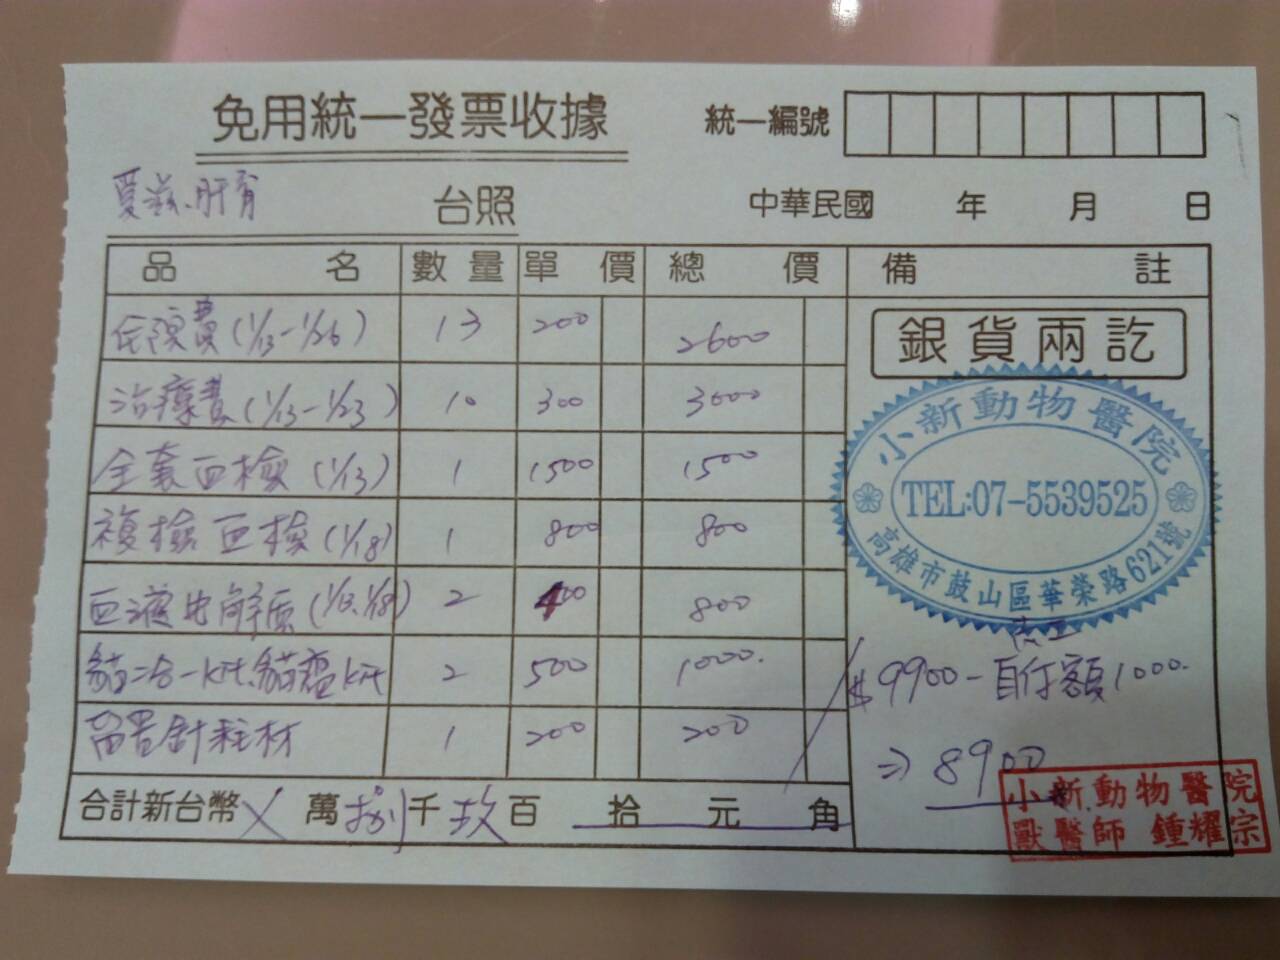 免用統一發票收據
統一編號
台照
中華民國 年 月 日
品名 數量 單價 總價 備註
住院費(1/13-1/26) 13 200 2600
治療費(1/13-1/23) 10 300 3000
全套血檢(1/13) 1 1500 1500
複檢血檢(1/18) 1 800 800
血液電解質(1/13.1/18) 2 400 800
貓二合一kit.貓瘟kit 2 500 1000.
留置針耗材 1 200 200
合計新台幣 萬 捌 千 玖 百 拾 元 角
銀貨兩訖
小新動物醫院
TEL:07-5539525
高雄市鼓山區華榮路621號
$9900-自付額1000.
⇒8900
小新動物醫院
獸醫師 鍾耀宗